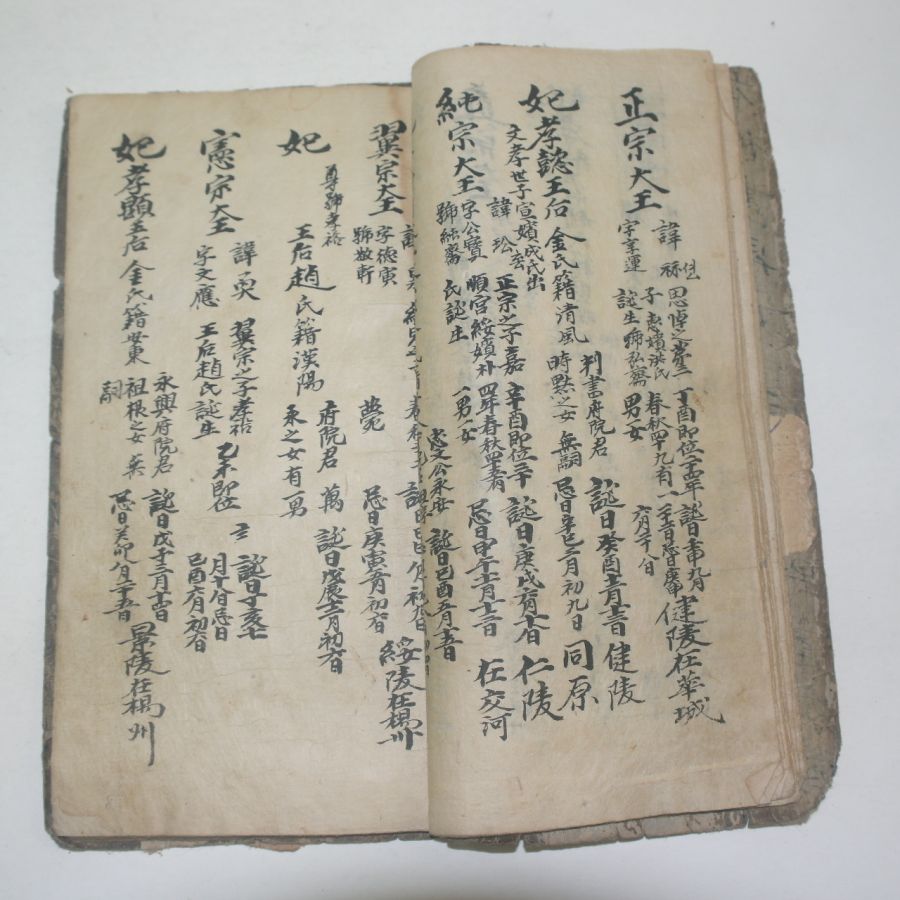 正宗大王 諱祘 字亨運 思悼之第二子 惠嬪洪氏誕生 號弘齋 丁酉即位二十四年 春秋四十九 有一男一女 誕日壬申九月 健陵在華城
妃孝懿王后 金氏籍清風 判書府院君時默之女 無嗣 誕日癸酉十二月十三日 忌日辛巳三月初九日 健陵同原
文孝世子 宣嬪成氏出
純宗大王 諱玜 字公寶 號純齋 正宗之子 嘉順宮綏嬪朴氏誕生 辛酉即位三十四年 春秋四十五 有一男一女 誕日庚戌六月十八日 忌日甲午十一月十三日 仁陵在交河
永安 誕日己酉五月十五日
翼宗大王 字德寅 號敬軒 薨 忌日庚寅五月初六日 綏陵在楊州
妃 尊號孝裕王后趙氏籍漢陽 府院君萬永之女 有一男 誕日戊辰十二月初六日
憲宗大王 諱奐 字文應 翼宗之子 孝裕王后趙氏誕生 乙未即位 誕日丁亥七月十八日 忌日己酉六月初六日
妃孝顯王后 金氏籍安東 永興府院君祖根之女 無嗣 誕日戊子三月十四日 忌日癸卯八月二十五日 景陵在楊州